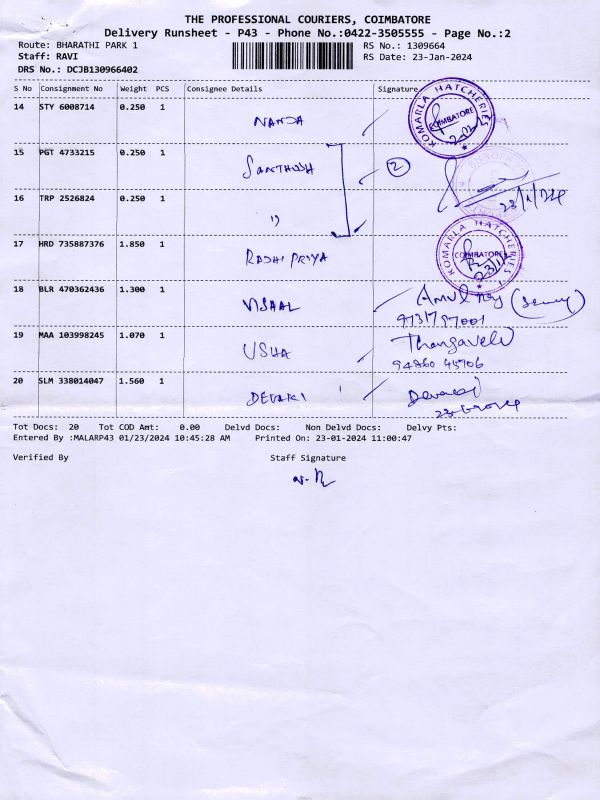 THE PROFESSIONAL COURIERS, COIMBATORE
Delivery Runsheet - P43 - Phone No.:0422-3505555 - Page No.:2
Route: BHARATHI PARK 1 RS No.: 1309664
Staff: RAVI RS Date: 23-Jan-2024
DRS No.: DCJB130966402
S No Consignment No Weight PCS Consignee Details Signature
14 STY 6008714 0.250 1 NANDA KOMARLA HATCHERIES COIMBATORE
15 PGT 4733215 0.250 1 SANTHOSH 2
16 TRP 2526824 0.250 1 "
17 HRD 735887376 1.850 1 RADHI PRIYA KOMARLA HATCHERIES COIMBATORE
18 BLR 470362436 1.300 1 VISAAL
9731797001
19 MAA 103998245 1.070 1 USHA Thangavelu
20 SLM 338014047 1.560 1 DEVAKI
Tot Docs: 20 Tot COD Amt: 0.00 Delvd Docs: Non Delvd Docs: Delvy Pts:
Entered By :MALARP43 01/23/2024 10:45:28 AM Printed On: 23-01-2024 11:00:47
Verified By Staff Signature